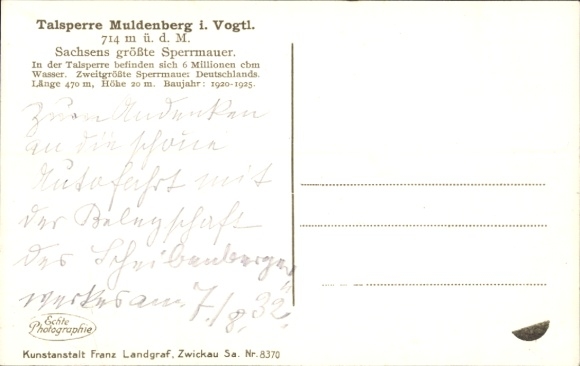 Talsperre Muldenberg i. Vogtl.
714 m ü. d. M.
Sachsens größte Sperrmauer.
In der Talsperre befinden sich 6 Millionen cbm
Wasser. Zweitgrößte Sperrmauer Deutschlands.
Länge 470 m, Höhe 20 m. Baujahr: 1920-1925.
Zum Andenken
an die schöne
Autofahrt mit
der Belegschaft
des Scheibenberger
werkes am 7./8. 32.
Echte
Photographie
Kunstanstalt Franz Landgraf, Zwickau Sa. Nr. 8370